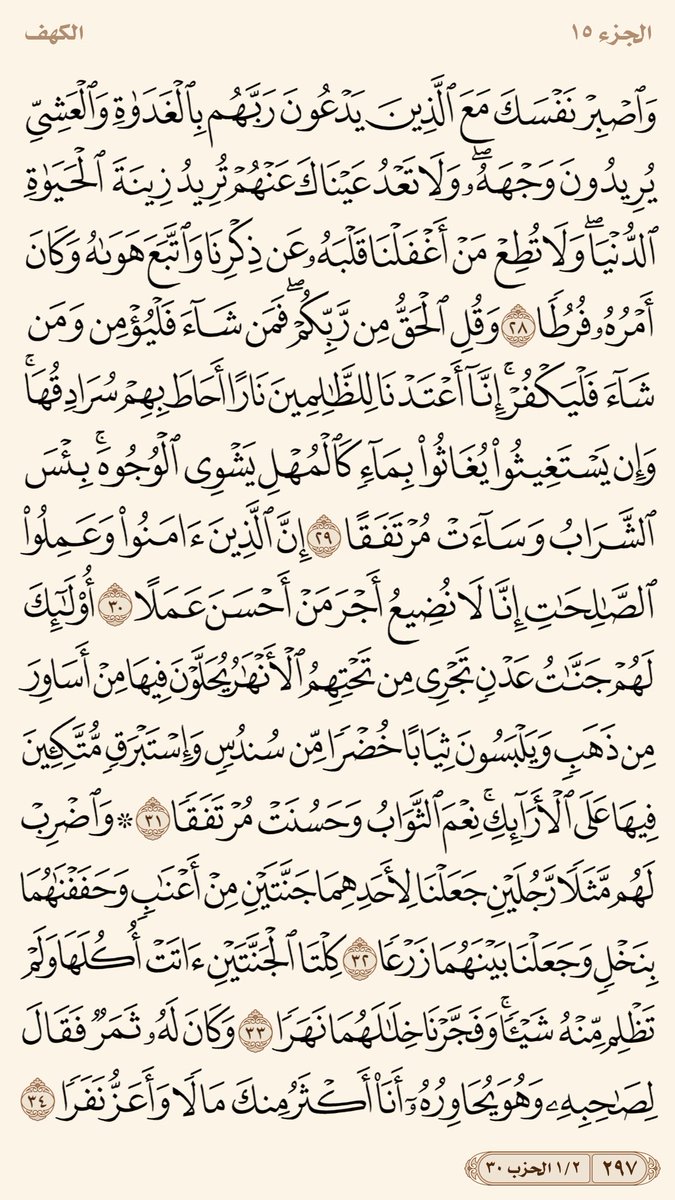 الجزء ١٥
الكهف
وَٱصۡبِرۡ نَفۡسَكَ مَعَ ٱلَّذِينَ يَدۡعُونَ رَبَّهُم بِٱلۡغَدَوٰةِ وَٱلۡعَشِيِّ
يُرِيدُونَ وَجۡهَهُۥۖ وَلَا تَعۡدُ عَيۡنَاكَ عَنۡهُمۡ تُرِيدُ زِينَةَ ٱلۡحَيَوٰةِ
ٱلدُّنۡيَاۖ وَلَا تُطِعۡ مَنۡ أَغۡفَلۡنَا قَلۡبَهُۥ عَن ذِكۡرِنَا وَٱتَّبَعَ هَوَىٰهُ وَكَانَ
أَمۡرُهُۥ فُرُطٗا ٢٨ وَقُلِ ٱلۡحَقُّ مِن رَّبِّكُمۡۖ فَمَن شَآءَ فَلۡيُؤۡمِن وَمَن
شَآءَ فَلۡيَكۡفُرۡۚ إِنَّآ أَعۡتَدۡنَا لِلظَّٰلِمِينَ نَارًا أَحَاطَ بِهِمۡ سُرَادِقُهَاۚ
وَإِن يَسۡتَغِيثُواْ يُغَاثُواْ بِمَآءٖ كَٱلۡمُهۡلِ يَشۡوِي ٱلۡوُجُوهَۚ بِئۡسَ
ٱلشَّرَابُ وَسَآءَتۡ مُرۡتَفَقًا ٢٩ إِنَّ ٱلَّذِينَ ءَامَنُواْ وَعَمِلُواْ
ٱلصَّٰلِحَٰتِ إِنَّا لَا نُضِيعُ أَجۡرَ مَنۡ أَحۡسَنَ عَمَلًا ٣٠ أُوْلَٰٓئِكَ
لَهُمۡ جَنَّٰتُ عَدۡنٖ تَجۡرِي مِن تَحۡتِهِمُ ٱلۡأَنۡهَٰرُ يُحَلَّوۡنَ فِيهَا مِنۡ أَسَاوِرَ
مِن ذَهَبٖ وَيَلۡبَسُونَ ثِيَابًا خُضۡرٗا مِّن سُندُسٖ وَإِسۡتَبۡرَقٖ مُّتَّكِـِٔينَ
فِيهَا عَلَى ٱلۡأَرَآئِكِۚ نِعۡمَ ٱلثَّوَابُ وَحَسُنَتۡ مُرۡتَفَقٗا ٣١ ۞ وَٱضۡرِبۡ
لَهُم مَّثَلٗا رَّجُلَيۡنِ جَعَلۡنَا لِأَحَدِهِمَا جَنَّتَيۡنِ مِنۡ أَعۡنَٰبٖ وَحَفَفۡنَٰهُمَا
بِنَخۡلٖ وَجَعَلۡنَا بَيۡنَهُمَا زَرۡعٗا ٣٢ كِلۡتَا ٱلۡجَنَّتَيۡنِ ءَاتَتۡ أُكُلَهَا وَلَمۡ
تَظۡلِم مِّنۡهُ شَيۡـٔٗاۚ وَفَجَّرۡنَا خِلَٰلَهُمَا نَهَرٗا ٣٣ وَكَانَ لَهُۥ ثَمَرٞ فَقَالَ
لِصَٰحِبِهِۦ وَهُوَ يُحَاوِرُهُۥٓ أَنَا۠ أَكۡثَرُ مِنكَ مَالٗا وَأَعَزُّ نَفَرٗا ٣٤
٢٩٧ ١/٢ الحزب ٣٠